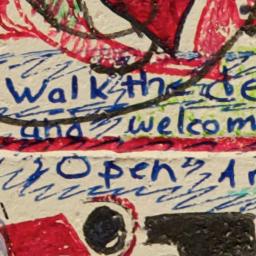 Walk the de
and welcom
Open Ar